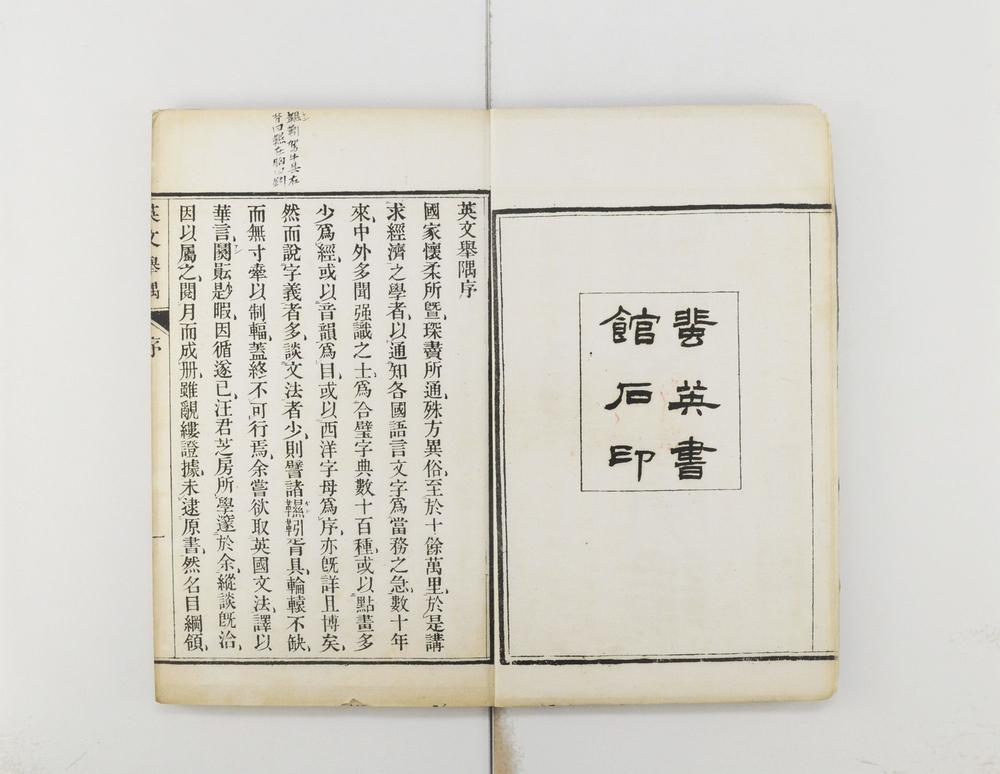 蜚英書
館石印
英文舉隅序
國家懷柔所曁琛賮所通殊方異俗至於十餘萬里於是講
求經濟之學者以通知各國語言文字爲當務之急數十年
來中外多聞强識之士爲合璧字典數十百種或以點畫多
少爲經或以音韻爲目或以西洋字母爲序亦旣詳且博矣
然而說字義者多談文法者少則譬諸靷胥具輪轅不缺
而無寸牽以制輻蓋終不可行焉余嘗欲取英國文法譯以
華言閡尟暇因循遂已汪君芝房所學邃於余縱談旣洽
因以屬之閱月而成册雖覼縷證據未逮原書然名目綱領
英文舉隅
序
一